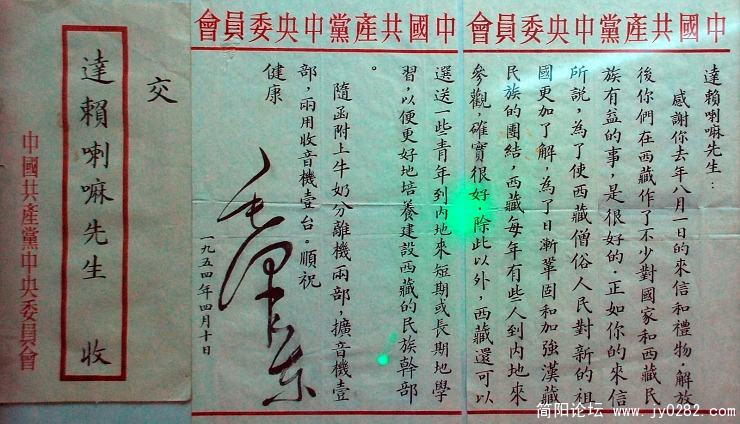 中國共產黨中央委員會
達賴喇嘛先生：
感謝你去年八月一日的來信和禮物．解放
後你們在西藏作了不少對國家和西藏民
族有益的事，是很好的．正如你的來信
所說，為了使西藏僧俗人民對新的祖
國更加了解，為了日漸鞏固和加強漢藏
民族的團結，西藏每年有些人到內地來
參觀，確實很好．除此以外，西藏還可以
中國共產黨中央委員會
選送一些青年到內地來短期或長期地學
習，以便更好地培養建設西藏的民族幹部
。
隨函附上牛奶分離機兩部，擴音機壹
部，兩用收音機壹台．順祝
健康
毛澤東
一九五四年四月十日
交
達賴喇嘛先生 收
中國共產黨中央委員會
简阳论坛 www.jy0282.com